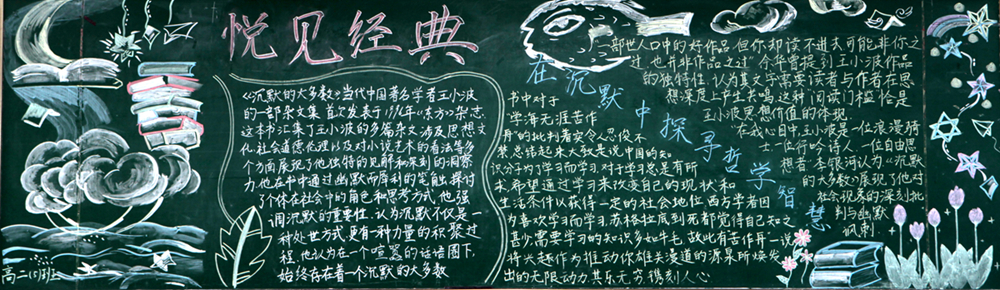 悦见经典
《沉默的大多数》当代中国著名学者王小波
的一部杂文集 首次发表于1996年《东方》杂志,
这本书汇集了王小波的多篇杂文涉及思想文
化社会道德伦理以及对小说艺术的看法等多
个方面展现了他独特的见解和深刻的洞察
力他在书中通过幽默而犀利的笔触,探讨
了个体在社会中的角色和思考方式 他强
调沉默的重要性,认为沉默不仅是一
种处世方式更有一种力量的积聚过
程,他认为在一个喧嚣的话语圈下,
始终存在着一个沉默的大多数
高二(5)班
在沉默中探寻哲学智慧
书中对于
学海无涯苦作
舟的批判着实令人忍俊不
禁,总结起来大致是说中国的知
识分子为了学习而学习,对于学习总是有所
求,希望通过学习来改变自己的现状和
生活条件以获得一定的社会地位,西方学者因
为喜欢学习而学习,苏格拉底到死都觉得自己知之
甚少,需要学习的知识多如牛毛,故此有苦作舟一说
将兴趣作为推动你雄关漫道的源泉所焕发
出的无限动力,其乐无穷,镌刻人心
一部世人口中的好作品,但你却读不进去,可能非你之
过,也并非作品之过"余华曾提到王小波作品
的独特性,认为其文字需要读者与作者在思
想深度上产生共鸣,这种阅读门槛恰是
王小波思想价值的体现
在我心目中,王小波是一位浪漫骑
士,一位行吟诗人,一位自由思
想者.李银河认为《沉默
的大多数》展现了他对
社会现象的深刻批
判与幽默
讽刺